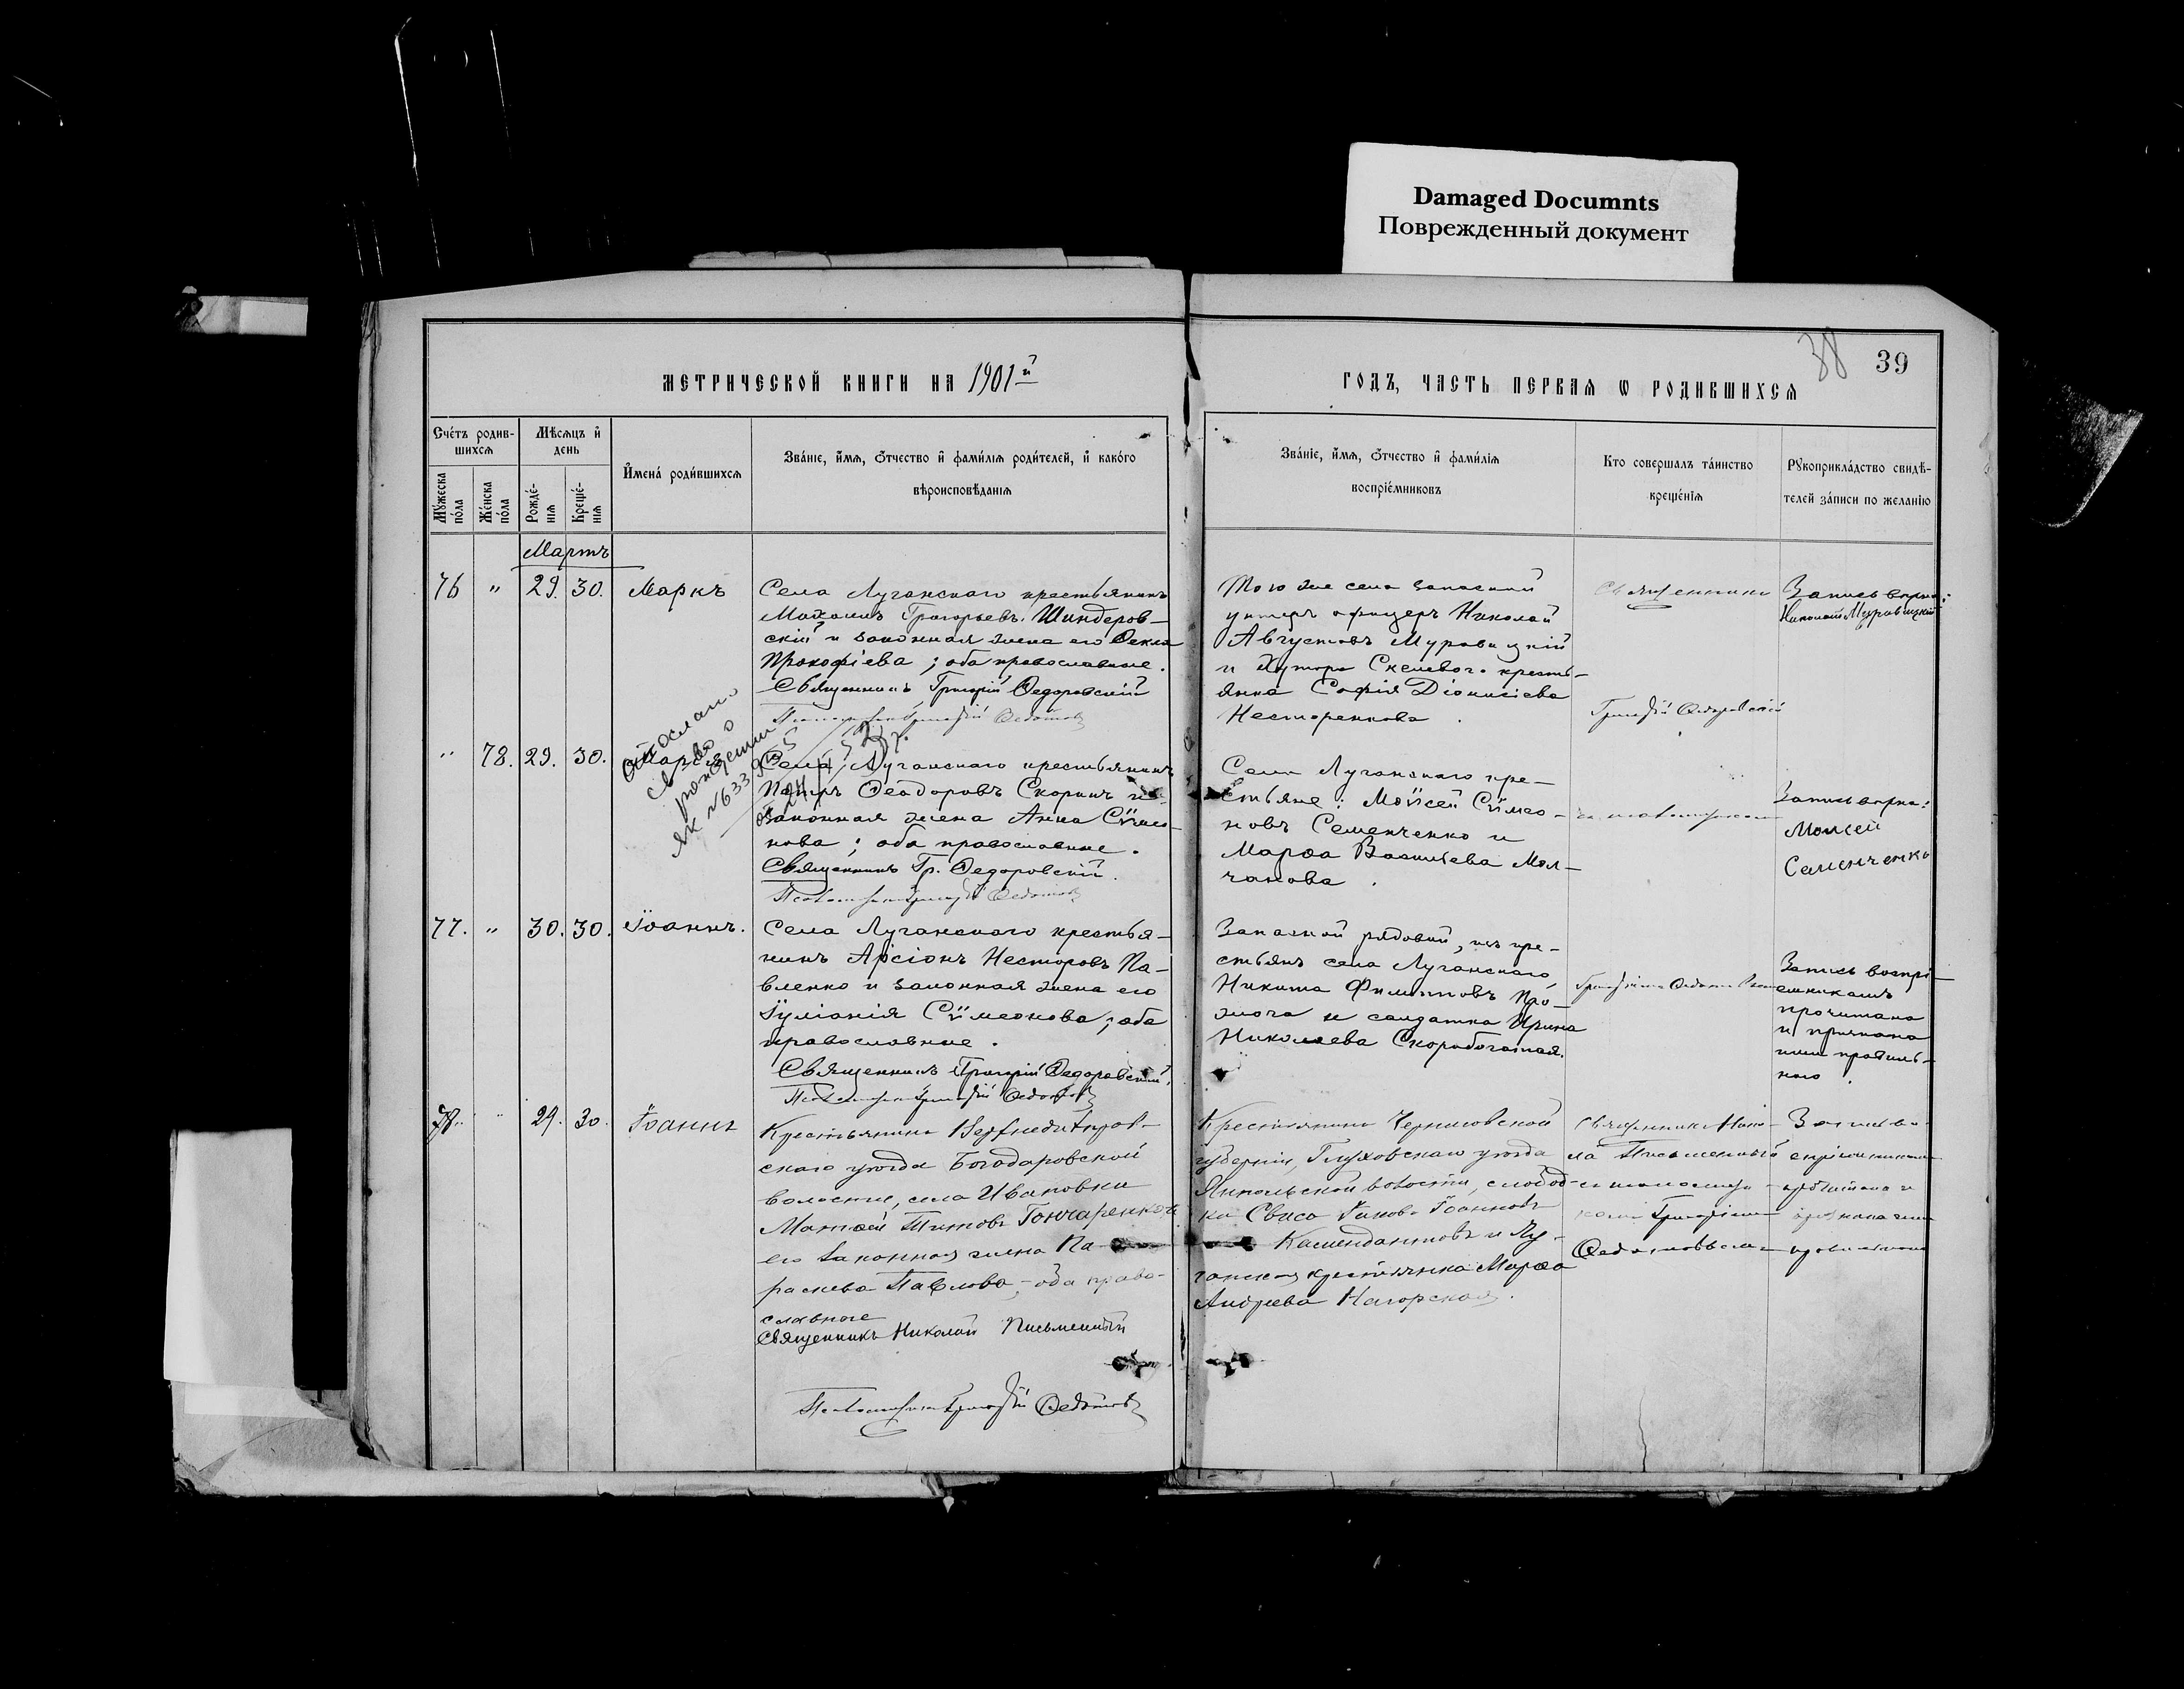 Damaged Documnts
Поврежденный документ
38
39
МЕТРИЧЕСКОЙ КНИГИ НА 1901й
ГОДЪ, ЧАСТЬ ПЕРВАЯ Ѡ РОДИВШИХСЯ
Счетъ родив-
шихся
Мѣсяцъ и
день
Мужеска
пола
Женска
пола
Рожде-
нія
Креще-
нія
Имена родившихся
Званіе, имя, отчество и фамилія родителей, и какого
вѣроисповѣданія
Званіе, имя, отчество и фамилія
воспріемниковъ
Кто совершалъ таинство
крещенія
Рукоприкладство свидѣ-
телей записи по желанію
Мартъ
76 " 29. 30. Маркъ
Села Луганскаго крестьянинъ
Михаилъ Григорьевъ Шиндеров-
скій и законная жена его Ѳекла
Прокофіева; оба православные.
Священникъ Григорій Ѳедоровскій
Псаломщикъ Григорій Ѳедотовъ
Того же села запасной
унтеръ офицеръ Николай
Августовъ Муравицкій
и Хутора Скелевого кресть-
янка Софія Діонисіева
Несторенкова.
Священникъ
Григорій Ѳедоровскій
Запись вѣрна:
Николай Муравицкій
" 78. 29. 30. Марѳа
отослано
св-во о
рождении
як №633
Села Луганскаго крестьянинъ
Петръ Ѳеодоровъ Скорикъ и
законная жена Анна Сѵмео-
нова; оба православные.
Священникъ Гр. Ѳедоровскій.
Псаломщикъ Григорій Ѳедотовъ
Села Луганскаго кре-
стьяне: Моѵсей Сѵмео-
новъ Семенченко и
Марѳа Васильева Мол-
чанова.
съ псаломщикомъ
Запись вѣрна:
Моисей
Семенченко
77. " 30. 30. Іоаннъ.
Села Луганскаго крестья-
нинъ Арсіонъ Несторовъ Па-
вленко и законная жена его
Іуліанія Сѵмеонова; оба
православные.
Священникъ Григорій Ѳедоровскій.
Псаломщикъ Григорій Ѳедотовъ
Запасной рядовой, изъ кре-
стьянъ села Луганскаго
Никита Филипповъ Про-
и солдатка Ирина
Николаева Скоробогатая.
Григоріемъ
Запись воспрі-
емникамъ
прочитана
и признана
ими правиль-
ною.
78. " 29. 30. Іоаннъ
Крестьянинъ Верхнеднѣпров-
скаго уѣзда Богодаровской
волости, села Ивановки
Матѳей Титовъ Гончаренко и
его законная жена Па-
раскева Павлова, - оба право-
славные
Священникъ Николай Письменный
Псаломщикъ Григорій Ѳедотовъ
Крестьянинъ Черниговской
губерніи, Глуховскаго уѣзда
Ямпольской волости, слобод-
ки Свиса Іоанновъ
Комендантовъ и Лу-
ганская крестьянка Марѳа
Андреева Нагорская.
Священникъ Нико-
лай Письменный
съ псаломщи-
комъ Григоріемъ
Ѳедотовымъ
Запись во-
спріемникамъ
прочитана и
признана ими
правильною